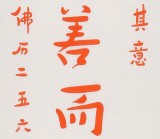 其意
善而
佛历二五六